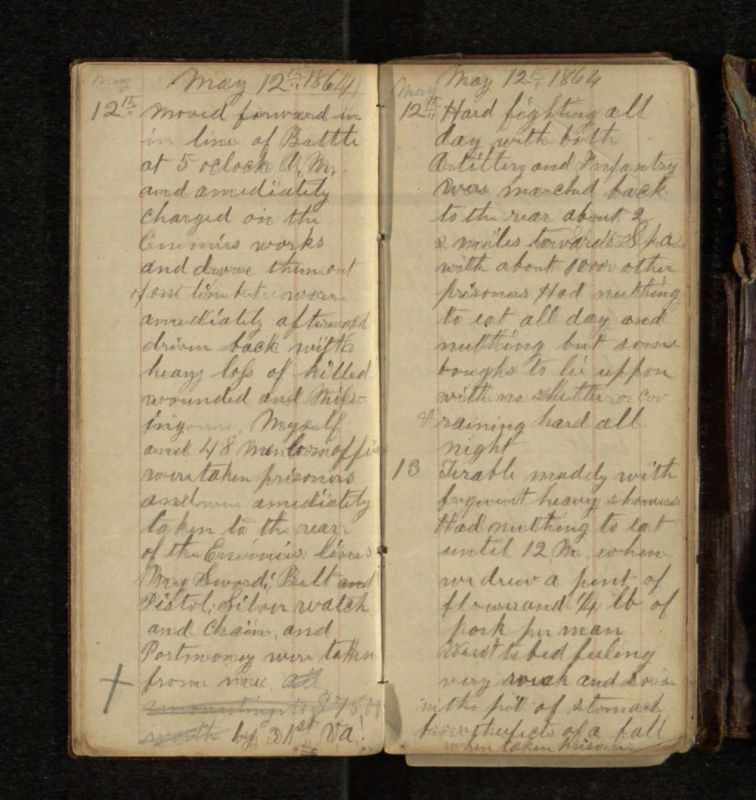 May
May 12th 1864
12th moved forward in
in line of Battle
at 5 oclock A.M.
and amediately
charged on the
Enemies works
and drove them out
of one line but were
amediatly afterward
driven back with
heavy loss of killed
wounded and Miss-
ing Myself
and 48 Men
were taken prisoners
and were amediatly
taken to the rear
of the Enemies lines
My Sword, Belt and
Pistol, Silver watch
and chain, and
Portmoney were taken
from me, all
amounting to $75.00
worth by 31st Va!
May
May 12th 1864
12th Hard fighting all
day with both
Artillery and Infantry
was marched back
to the rear about 2
2 miles towards Spa
with about 1000 other
prisoners Had nuthing
to eat all day and
nuthing but some
boughs to lie uppon
with no shelter or cov
& raining hard all
night
13 Terable muddy with
frequent heavy showers
Had nuthing to eat
until 12, M, when
we drew a pint of
flower and 1/4 lb of
pork per man
Went to bed feeling
very weak and
in the pit of stomach
from the effects of a fall
when taken prisoner